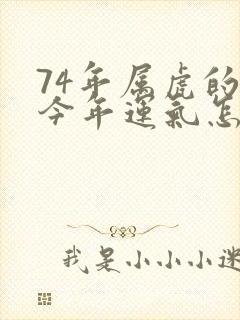 74年属虎的
今年运气怎
我是小小小迷